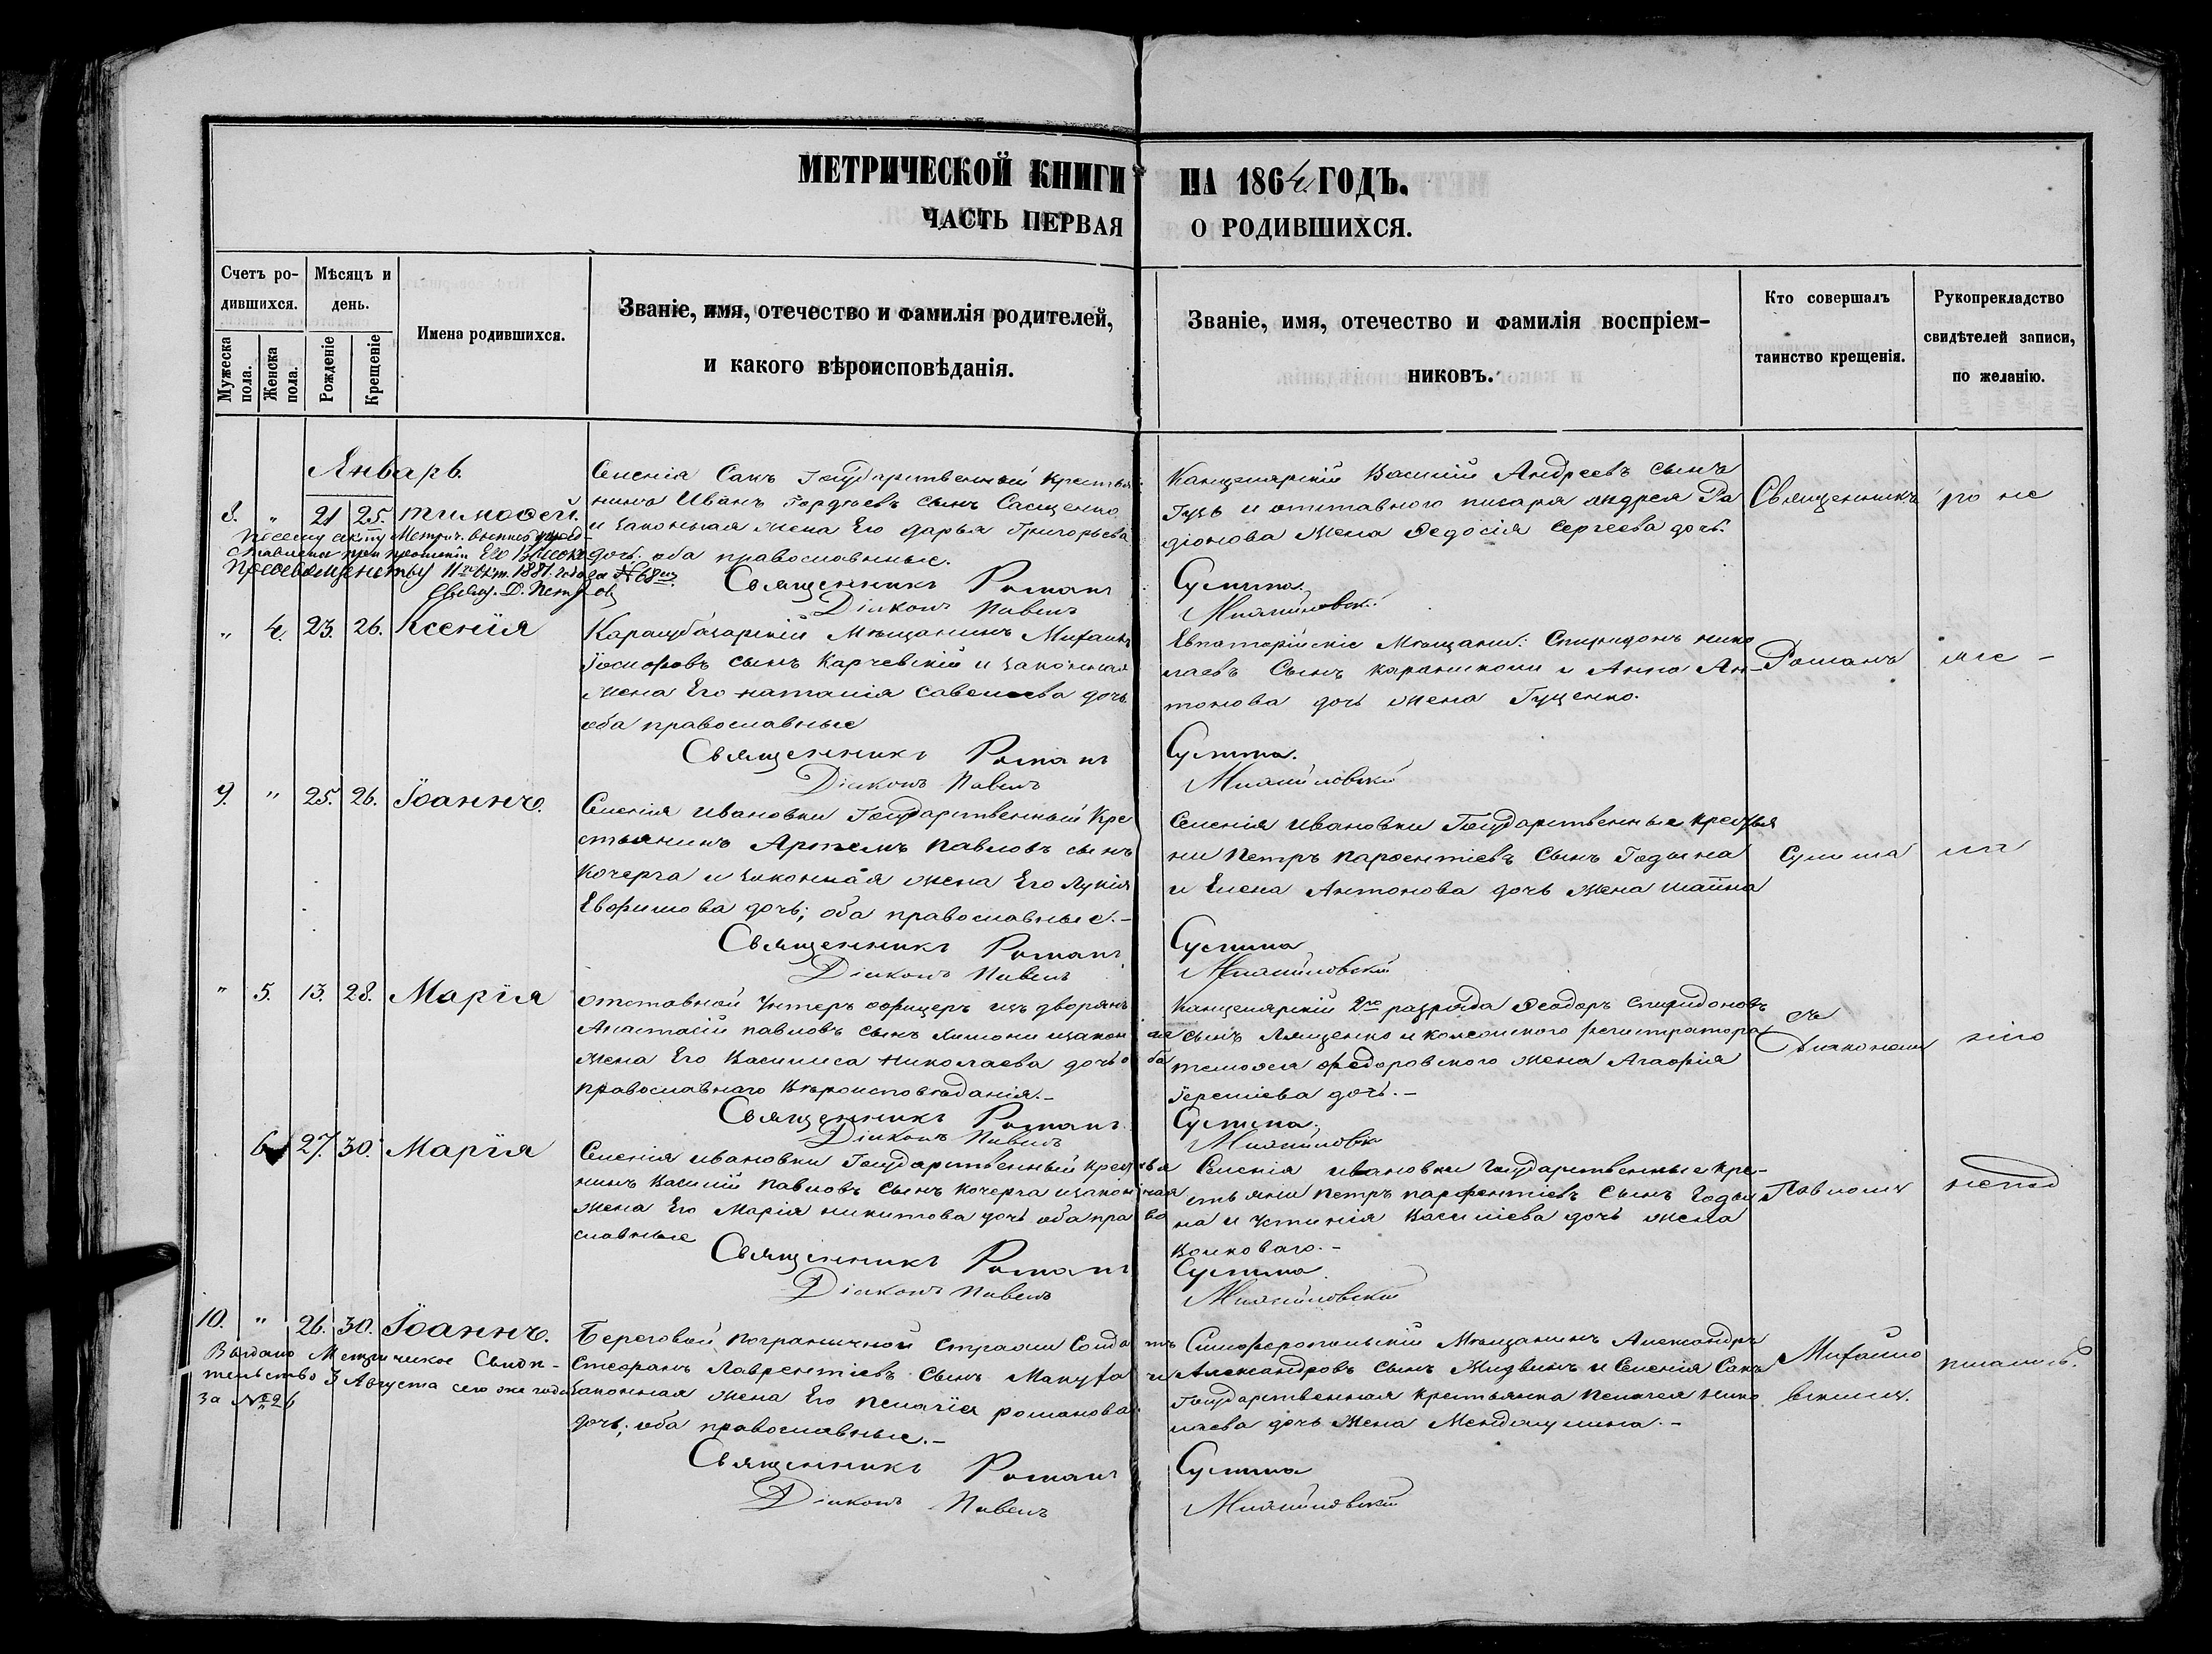 МЕТРИЧЕСКОЙ КНИГИ НА 1864 ГОДЪ.
ЧАСТЬ ПЕРВАЯ О РОДИВШИХСЯ.
Счетъ ро-
дившихся.
Мужеска пола.
Женска пола.
Мѣсяцъ и
день.
Рожденіе
Крещеніе
Имена родившихся.
Званіе, имя, отечество и фамилія родителей,
и какого вѣроисповѣданія.
Званіе, имя, отечество и фамилія воспріем-
никовъ.
Кто совершалъ
таинство крещенія.
Рукоприкладство
свидѣтелей записи,
по желанію.
Январь.
8. " 21 25. Тимофей.
Селенія Сакъ Государственный крестья
нинъ Иванъ Гордѣевъ сынъ Сащенко
и законная жена Его Дарья Григорьева
дочь. оба православные.
Священникъ Романъ
Діаконъ Павелъ
Канцелярскій Василій Андреевъ сынъ
Гузь и отставного писаря Андрея Ра
діонова жена Ѳедосія Сергѣева дочь.
Сулима.
Михайловскій
Священникъ
11го Окт. 1881. года за № 68
Свящ. Д. Петровъ
" 4. 23. 26. Ксенія
Карацубазарскій Мѣщанинъ Михаилъ
Іосифовъ сынъ Карчевскій и законная
жена Его Наталія Савельева дочь
оба православные
Священникъ Романъ
Діаконъ Павелъ
Евпаторійскіе Мѣщане: Спиридонъ Нико
лаевъ Сынъ и Анна Ан-
тонова дочь жена Гущенко.
Сулима.
Михайловскій
Романъ
9. " 25. 26. Іоаннъ.
Селенія Ивановки Государственный Кре
стьянинъ Артемъ Павловъ сынъ
Кочерга и законная жена Его Лукія
Евфимова дочь; оба православные.-
Священникъ Романъ
Діаконъ Павелъ
Селенія Ивановки Государственные крестья
не Петръ Парфентіевъ Сынъ Годына
и Елена Антонова дочь жена
Сулима
Михайловскій
Сулима
" 5. 13. 28. Марія
отставной Унтеръ офицеръ изъ дворянъ
Анастасій Павловъ сынъ и закон ная
жена Его Василиса Николаева дочь оба
православнаго Вѣроисповѣданія.-
Священникъ Романъ
Діаконъ Павелъ
Канцелярскій 2го разряда Ѳеодоръ Спиридоновъ
сынъ Лященко и колежского регистратора
Тимофея Федоровского жена Агафія
дочь.-
Сулима.
Михайловскій
съ
Діакономъ
6 27. 30. Марія
Селенія Ивановки Государственный крестья
нинъ Василій Павловъ Сынъ Кочерга и закон ная
жена Его Марія Никитова дочь оба пра во
славные
Священникъ Романъ
Діаконъ Павелъ
Селенія Ивановки Государственные кре-
стьяни Петръ Парфентіевъ Сынъ Годы
на и Устинія Василіева дочь жена
Волковаго.-
Сулима.
Михайловскій
Павломъ
10. " 26. 30. Іоаннъ.
Выдано Метрическое Свидѣ-
тельство 3 Августа сего же года
за № 26
Береговой пограничной Стражи Солда тъ
Стефанъ Лаврентіевъ Сынъ и
законная жена Его Пелагія Романова
дочь; оба православные.-
Священникъ Романъ
Діаконъ Павелъ
Симферопольскій Мѣщанинъ Александръ
Александровъ сынъ и Селенія Сакъ
Государственная крестьянка Пелагея Нико
лаева дочь жена
Сулима
Михайловскій
Михайло
вскимъ.